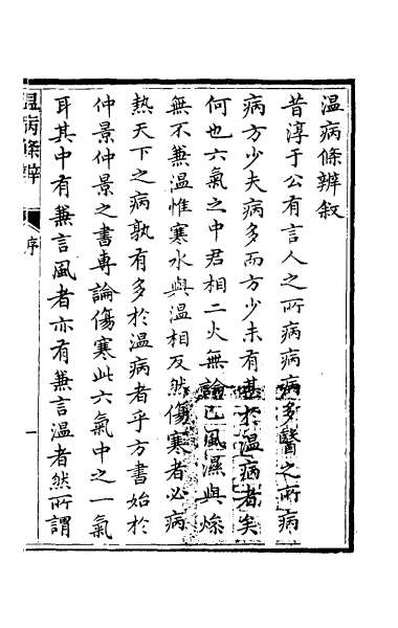 温病條辨叙
昔淳于公有言人之所病病病多醫之所病
病方少夫病多而方少未有甚於温病者矣
何也六氣之中君相二火無論已風濕與燥
無不兼温惟寒水與温相反然傷寒者必病
熱天下之病孰有多於温病者乎方書始於
仲景仲景之書專論傷寒此六氣中之一氣
耳其中有兼言風者亦有兼言温者然所謂
温病條辨
序
一